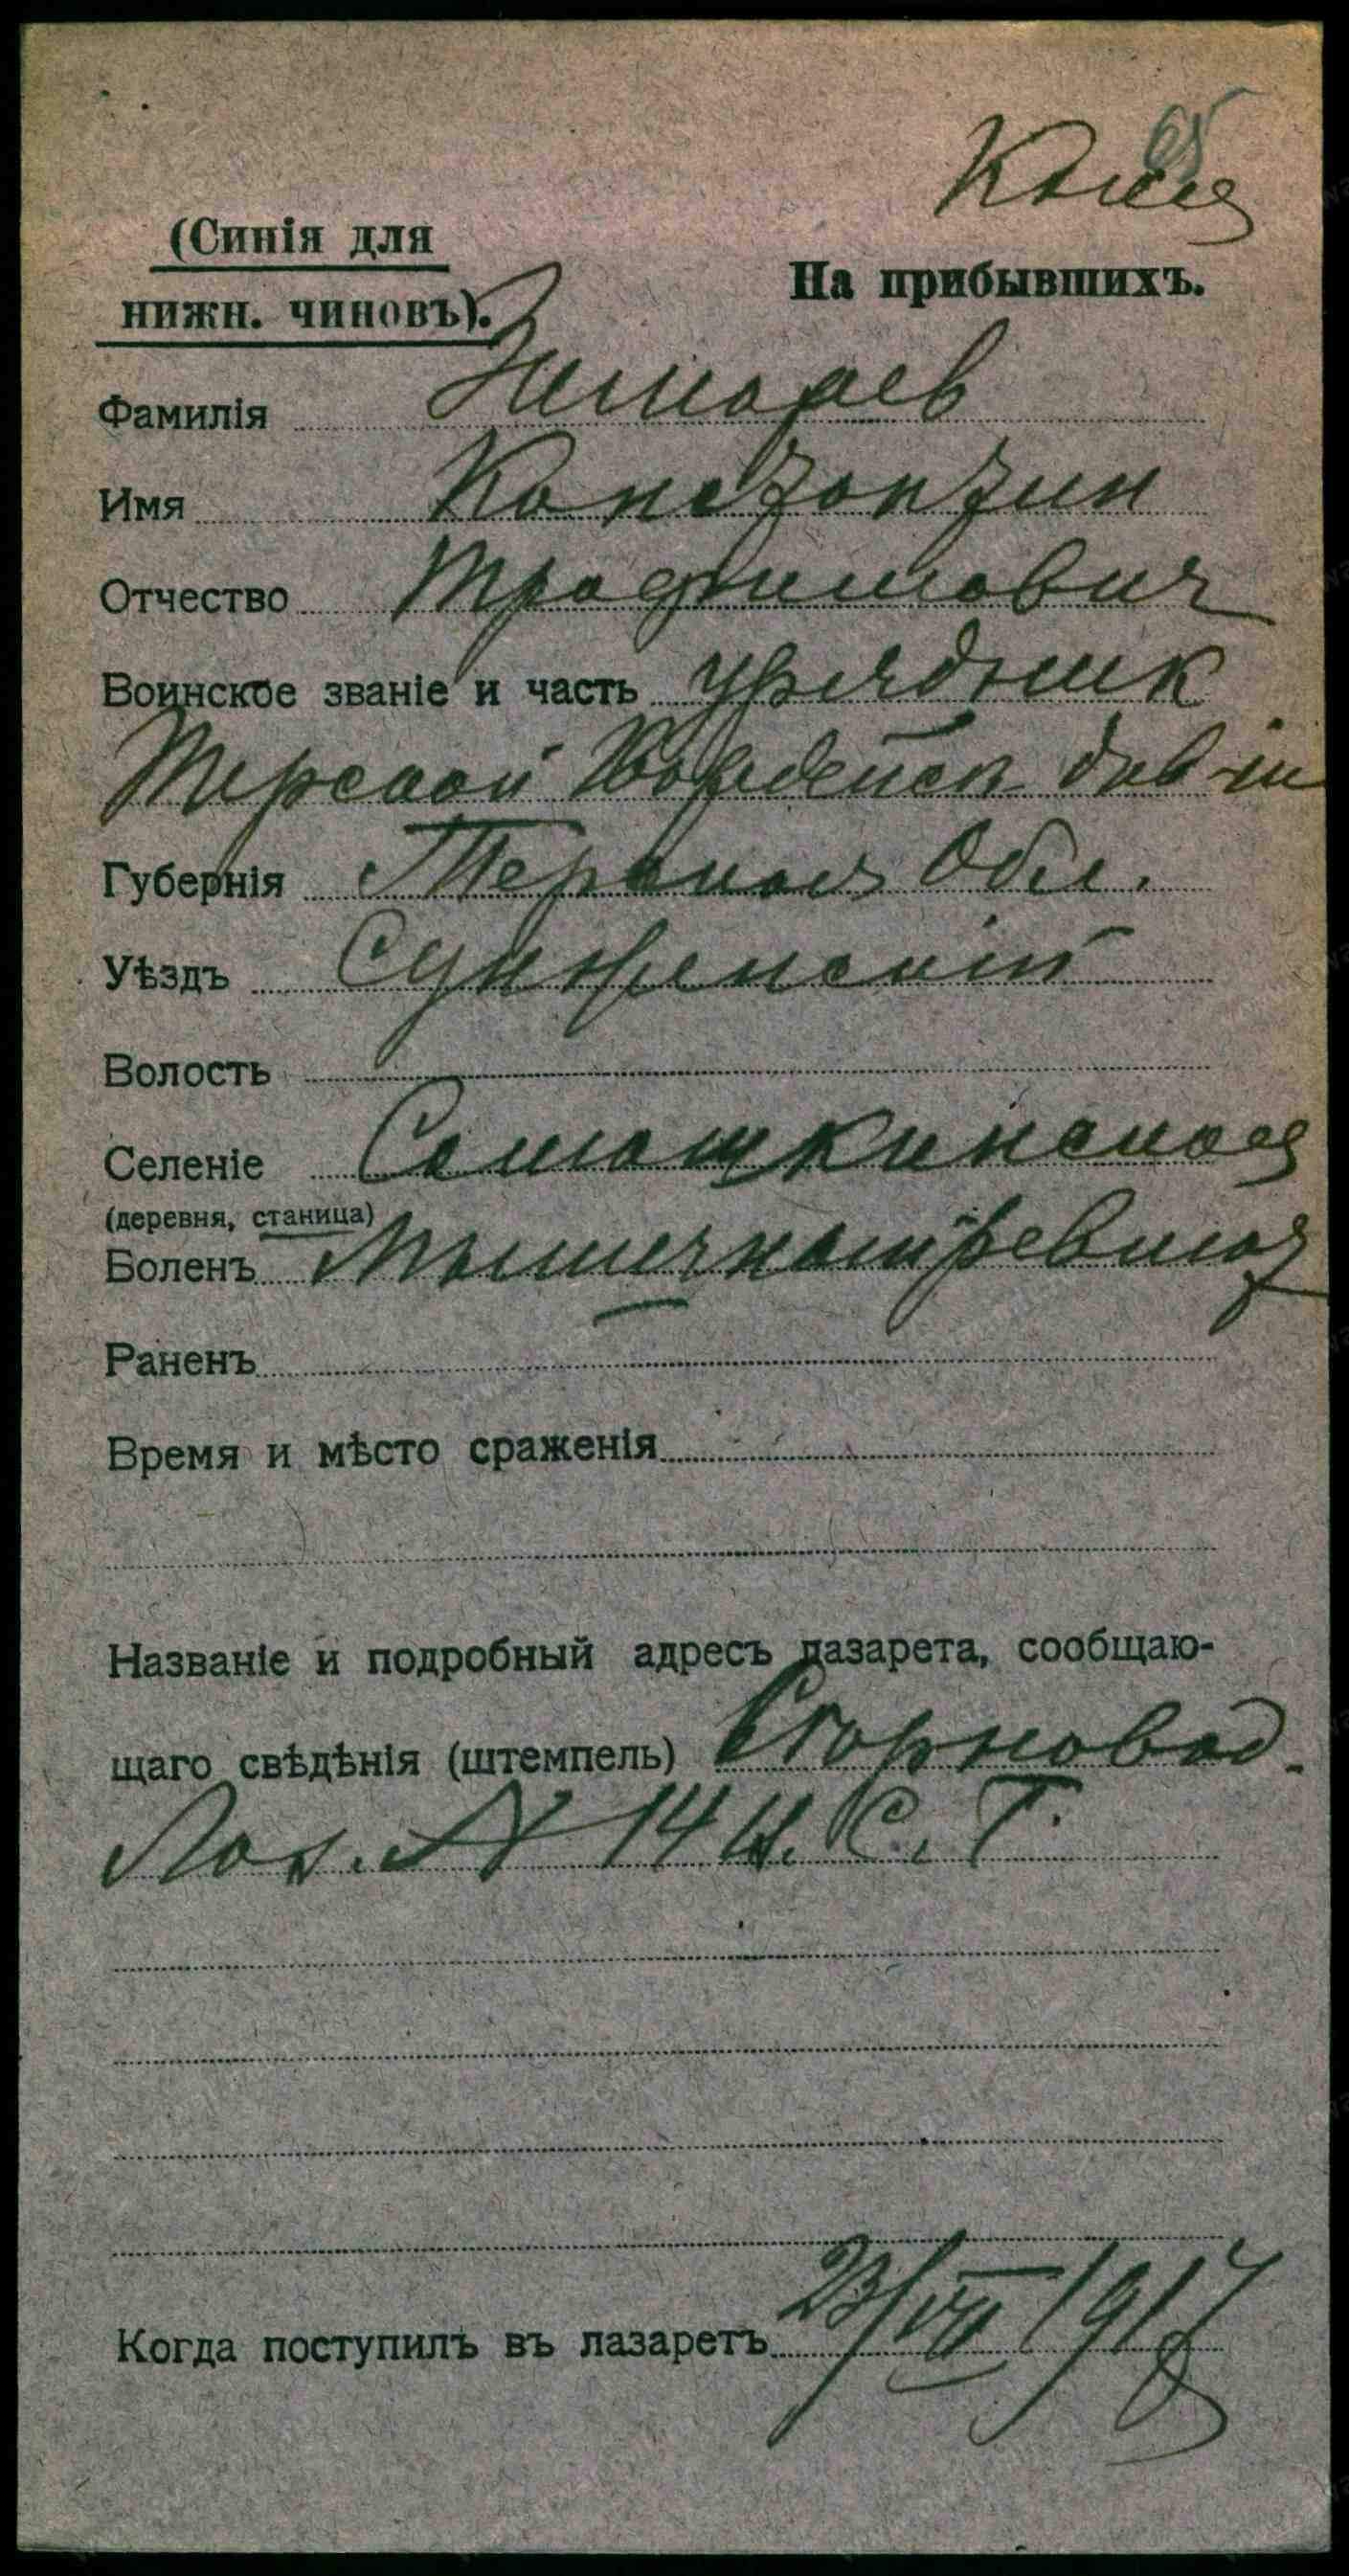 65
(Синія для
нижн. чиновъ).
На прибывшихъ.
Фамилія
Имя Константин
Отчество Трофимович
Воинское званіе и часть урядник
Терской Гвардейск див-ін
Губернія Терская Обл.
Уѣздъ Сунженскій
Волость
Селеніе Самашкинская
(деревня, станица)
Боленъ Мышечный ревмат
Раненъ
Время и мѣсто сраженія
Названіе и подробный адресъ лазарета, сообщаю-
щаго свѣдѣнія (штемпель) Єгорновод.
Лаз. № 14 И. С. Г.
Когда поступилъ въ лазаретъ 23/VII 1917